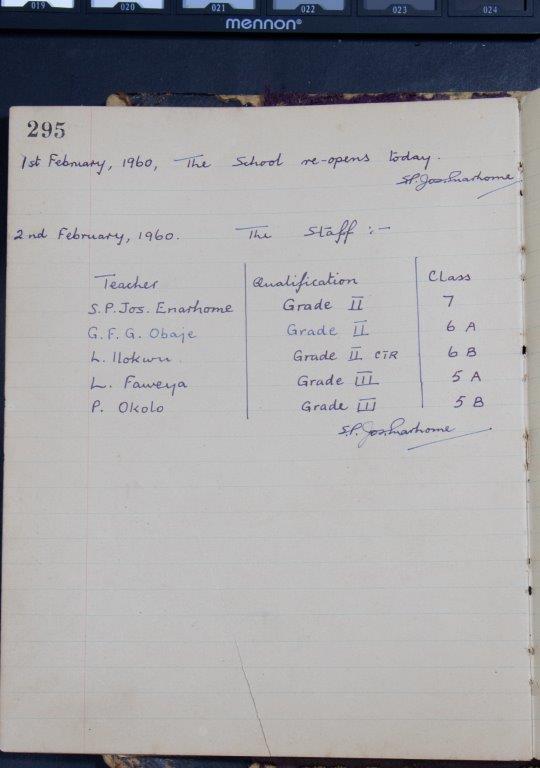 019 020 021 022 023 024
mennon®
295
1st February, 1960, The School re-opens today.
S.P. Jos. Enarhome
2nd February, 1960. The Staff :-
Teacher Qualification Class
S.P. Jos. Enarhome Grade II 7
G.F.G. Obaje Grade II 6 A
L. Ilokwu Grade II CTR 6 B
L. Faweya Grade III 5 A
P. Okolo Grade III 5 B
S.P. Jos. Enarhome